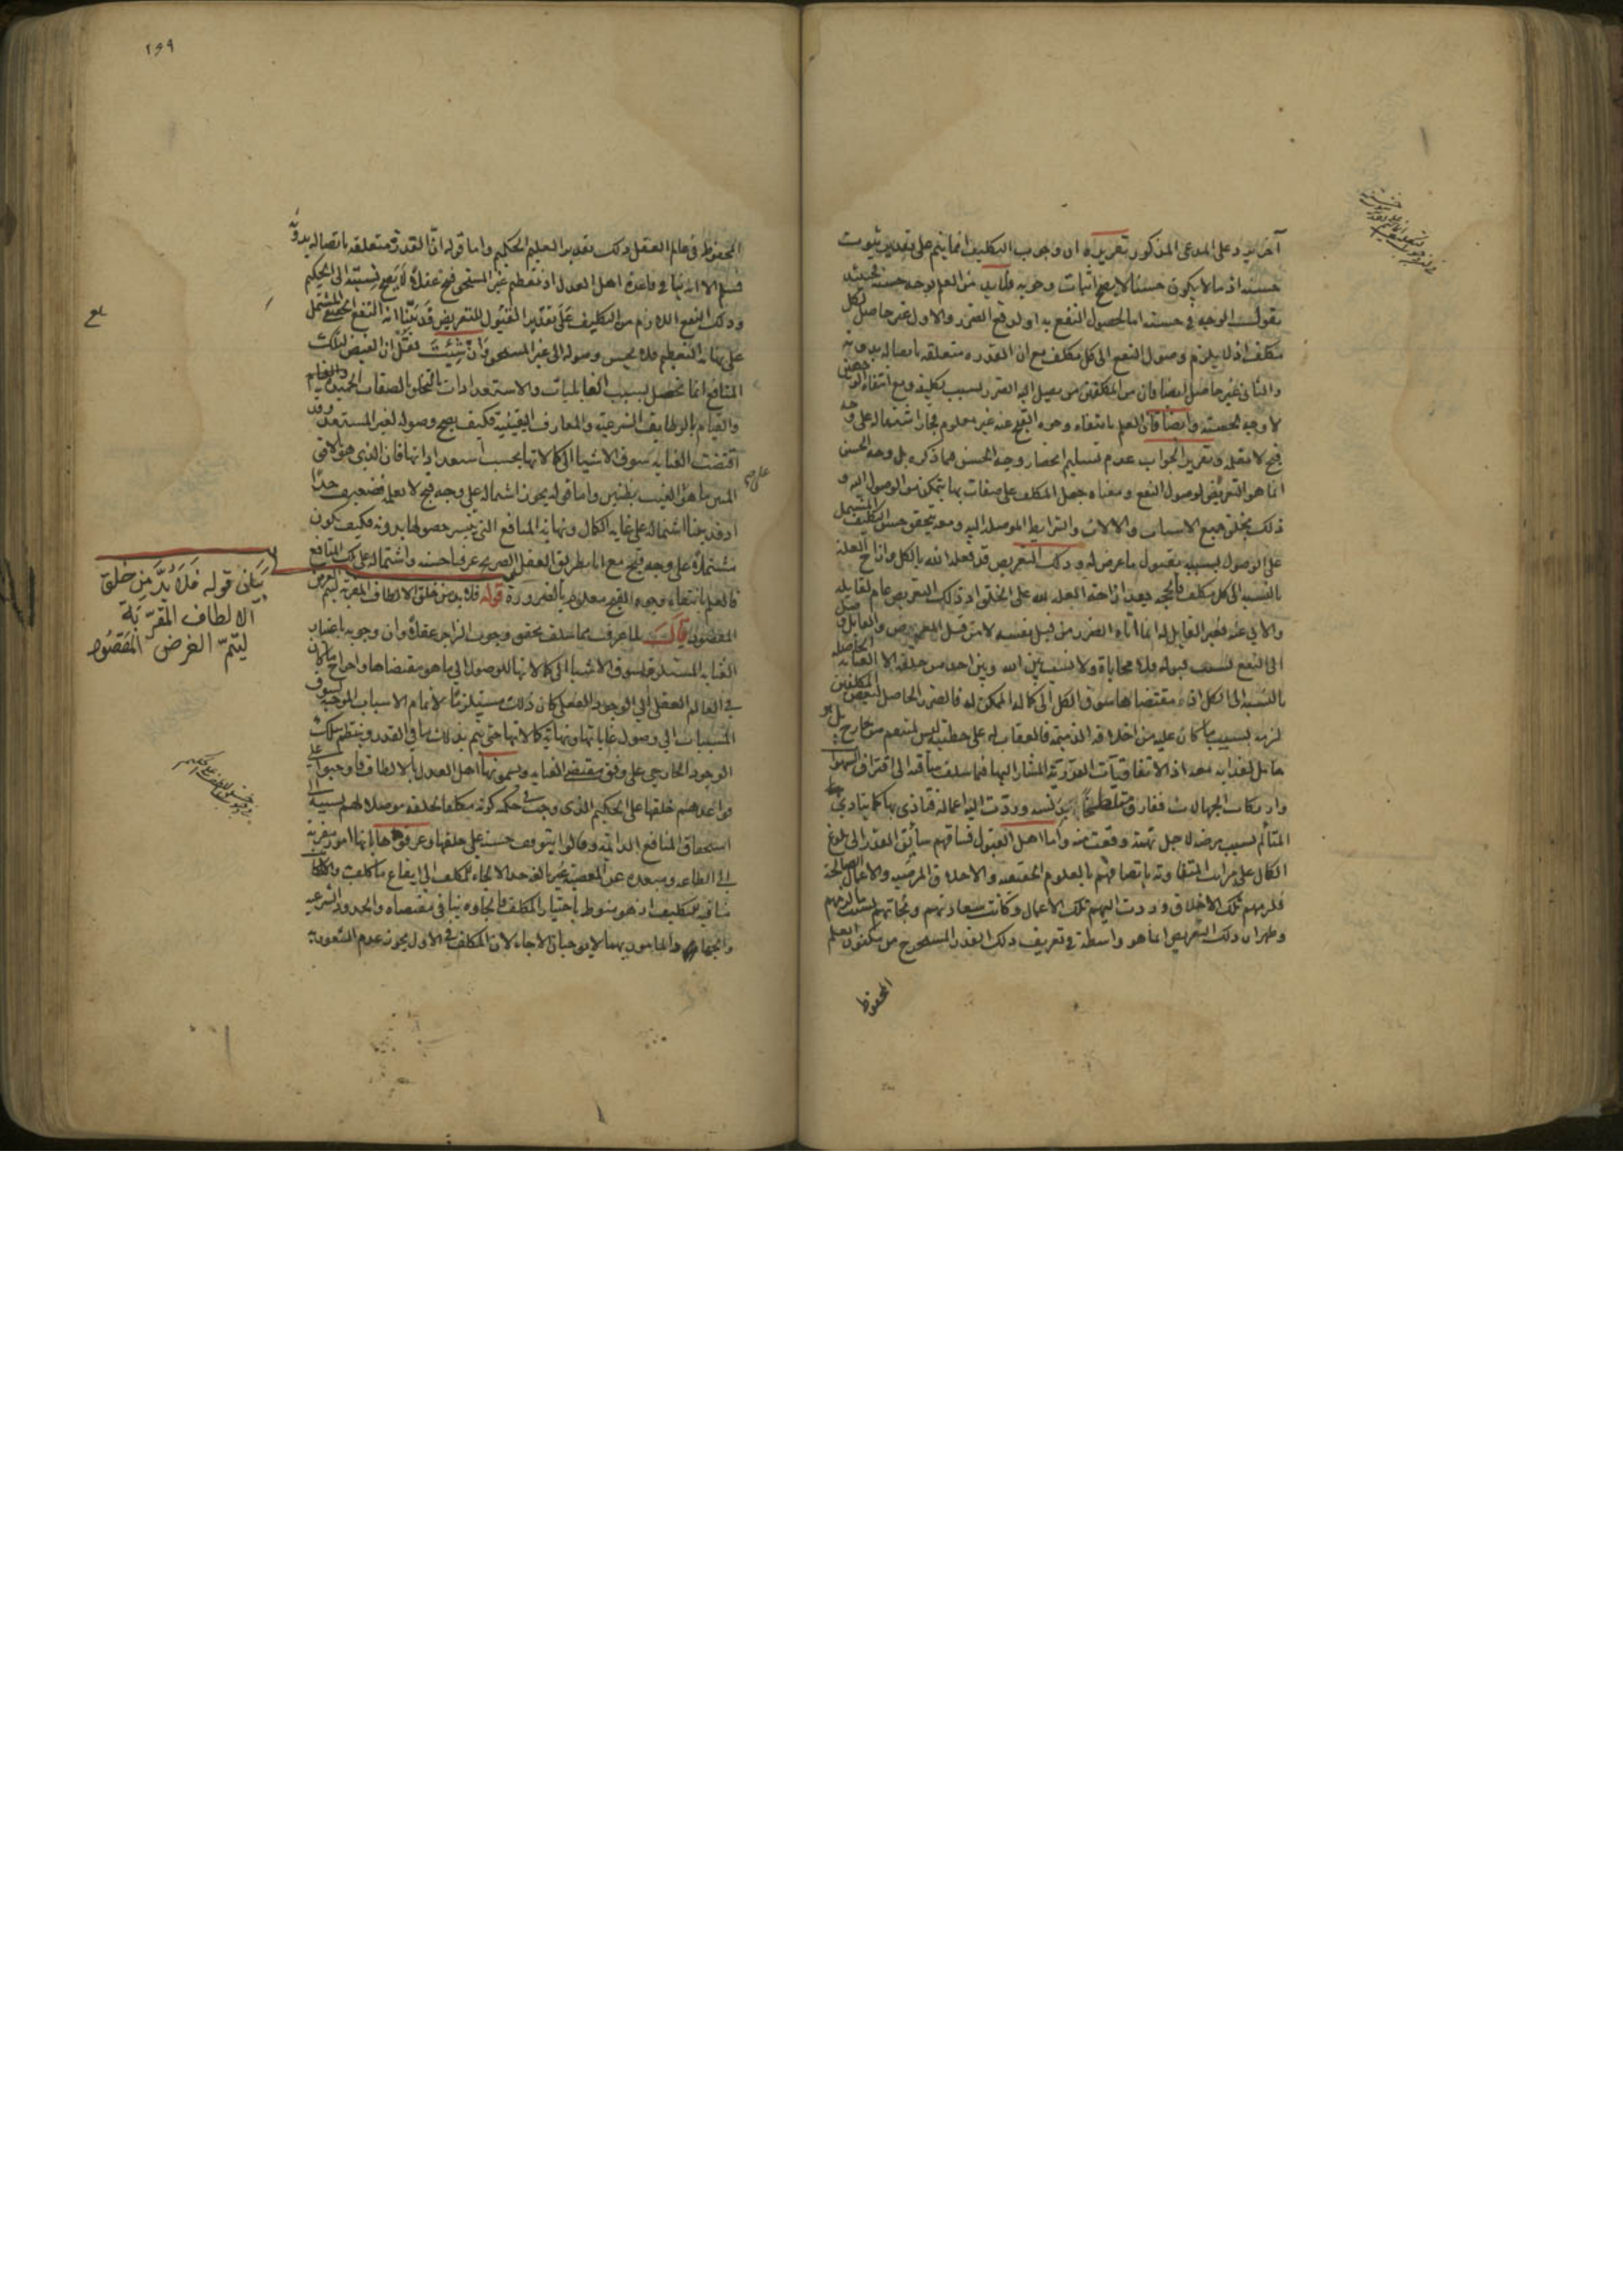 آخر يرد على المدعى المذكور تقريره ان وجوب التكليف انما يتم على تقدير ثبوت
حسنه اذ ما لا يكون حسنا لا يصح اثبات وجوبه فلابد من العلم بوجه حسنه فحينئذ
نقول الوجه في حسنه اما لحصول النفع به او لدفع الضرر والاول غير حاصل لكل
مكلف اذ لا يلزم وصول النفع الى كل مكلف مع ان القدرة متعلقه بايصاله بدونه
والثاني غير حاصل ايضا فان من المكلفين من يصل اليه الضرر بسبب تكليفه ومع انتفاء الوجهين
لا وجه لحسنه وايضا فان العلم بانتفاء وجوه القبح عنه غير معلوم فجاز اشتماله على وجه
قبح لا نعقله وتقرير الجواب عدم تسليم انحصار وجه الحسن فيما ذكره بل وجه الحسن
انما هو التعريض لوصول النفع ومعناه جعل المكلف على صفات بها يتمكن من الوصول اليه و
ذلك بخلق جميع الاسباب والالات والشرايط الموصله اليه ومعه يتحقق حسن التكليف المشتمل
على الوصول بسببه بقبول ما عرض له وذلك التعريض قد فعله الله بالكل وازاح العلة
بالنسبه الى كل مكلف فالحجه بعد ازاحته العله لله على الخلق اذ ذلك التعريض عام لقابله
والابي عنه فغير القابل له انما اتاه الضرر من قبل نفسه لا من قبل التعريض والقابل وصل
الى النفع بسبب قبوله فلا محاباة ولا نسب بين الله وبين احد من خلقه الا العنايه الحاصله
بالنسبه الى الكل اذ مقتضاها سوق الكل الى كماله الممكن له فالضرر الحاصل لبعض المكلفين
لزمه بسبب ما كان عليه من اخلاقه الذميمه فالعقاب له على خطيئته ليس لمنتقم من خارج بل هو
حامل لعذابه معه اذ الاتفاقيات القدرية المشار اليها فيما سلف ساقته الى اقتراف السيئات
وارتكاب الجهالات ففارق متلطخا بدنسه وردت اليه اعماله فتاذى بها كما يتاذى
المتألم بسبب مرضه لاجل نهمة وقعت منه واما اهل القبول فساقهم سائق القدر الى بلوغ
الكمال على مراتب المتفاوته باتصافهم بالعلوم الحقيقيه والاخلاق المرضيه والاعمال الصالحة
فلزمهم تلك الاخلاق وردت اليهم تلك الاعمال وكانت سعادتهم ونجاتهم بسبب ما لزمهم
وظهر ان ذلك التعريض انما هو واسطة في تعريف ذلك القدر المستخرج من مكنون العلم
المحفوظ
١٥٩
المحفوظ في عالم العقل وذلك تقدير العليم الحكيم واما قوله ان القدرة متعلقه بايصاله بدونه
فمسلم الا انه بنا في قاعدة اهل العدل اذ تعظيم غير المستحق قبح عقلا لا يصح نسبته الى الحكيم
وذلك النفع اللازم من التكليف على تقدير القبول للتعريض قد بينا انه النفع الحقيقي المشتمل
على نهاية التعظيم فلا يحسن وصوله الى غير المستحق وان شئت نقل ان الفيض لتلك
المنافع انما تحصل بسبب القابليات والاستعدادات بالتحلي بالصفات الحميدة
والقيام بالوظايف الشرعيه والمعارف اليقينيه فكيف يصح وصوله لغير المستعد وقد
اقتضت العنايه سوق الاشيا الى كمالاتها بحسب استعداداتها
واما قوله يجوز اشتماله على وجه قبح لا نعلمه فضعيف جدا
اذ قد بينا اشتماله على غاية الكمال ونهاية المنافع التي يتيسر حصولها بدونه فكيف يكون
مشتملا على وجه قبح مع انا بطريق العقل الصريح عرفنا حسنه واشتماله على تلك المنافع
فالعلم بانتفاء وجوه القبح معلوم بالضرورة قوله فلا بد من خلق الالطاف المقربة ليتم الغرض
المقصود قال لما عرفت مما سلف تحقق وجوب الزاجر عقلا وان وجوبه باعتبار
العنايه المستلزمه لسوق الاشيا الى كمالاتها للوصول الى ما هو مقتضاها واخراج ما كان
في العالم العقلي الى الوجود الفعلي كان ذلك مستلزما لاتمام الاسباب الموجبه لسوق
المسببات الى وصول غاياتها ونهاية كمالاتها حتى يتم بذلك ما في القدر وينتظم سلك
الوجود الخارجي على وفق مقتضى العنايه ويسمونها اهل العدل بالالطاف فاوجبوا على
قواعدهم خلقها على الحكيم الذي وجب في حكمه كونه مكلفا لخلقه موصلا لهم بسببه الى
استحقاق المنافع الدائمه وقالوا يتوقف حسنه على خلقها وعرفوها بانها امور مقربة
الى الطاعه ومبعده عن المعصيه غير بالغه حد الالجاء للمكلف الى ايقاع ما كلف
منافيه للتكليف اذ هو منوط باختيار المكلف فالجاوه ينافي مقتضاه والحدود الشرعيه
والجهاد والقائمون بهما لا يوجبان الالجاء لان المكلف في الاول يجوز عدم الشعور به
بيان قوله فلا بد من خلق
الالطاف المقربة
ليتم الغرض المقصود